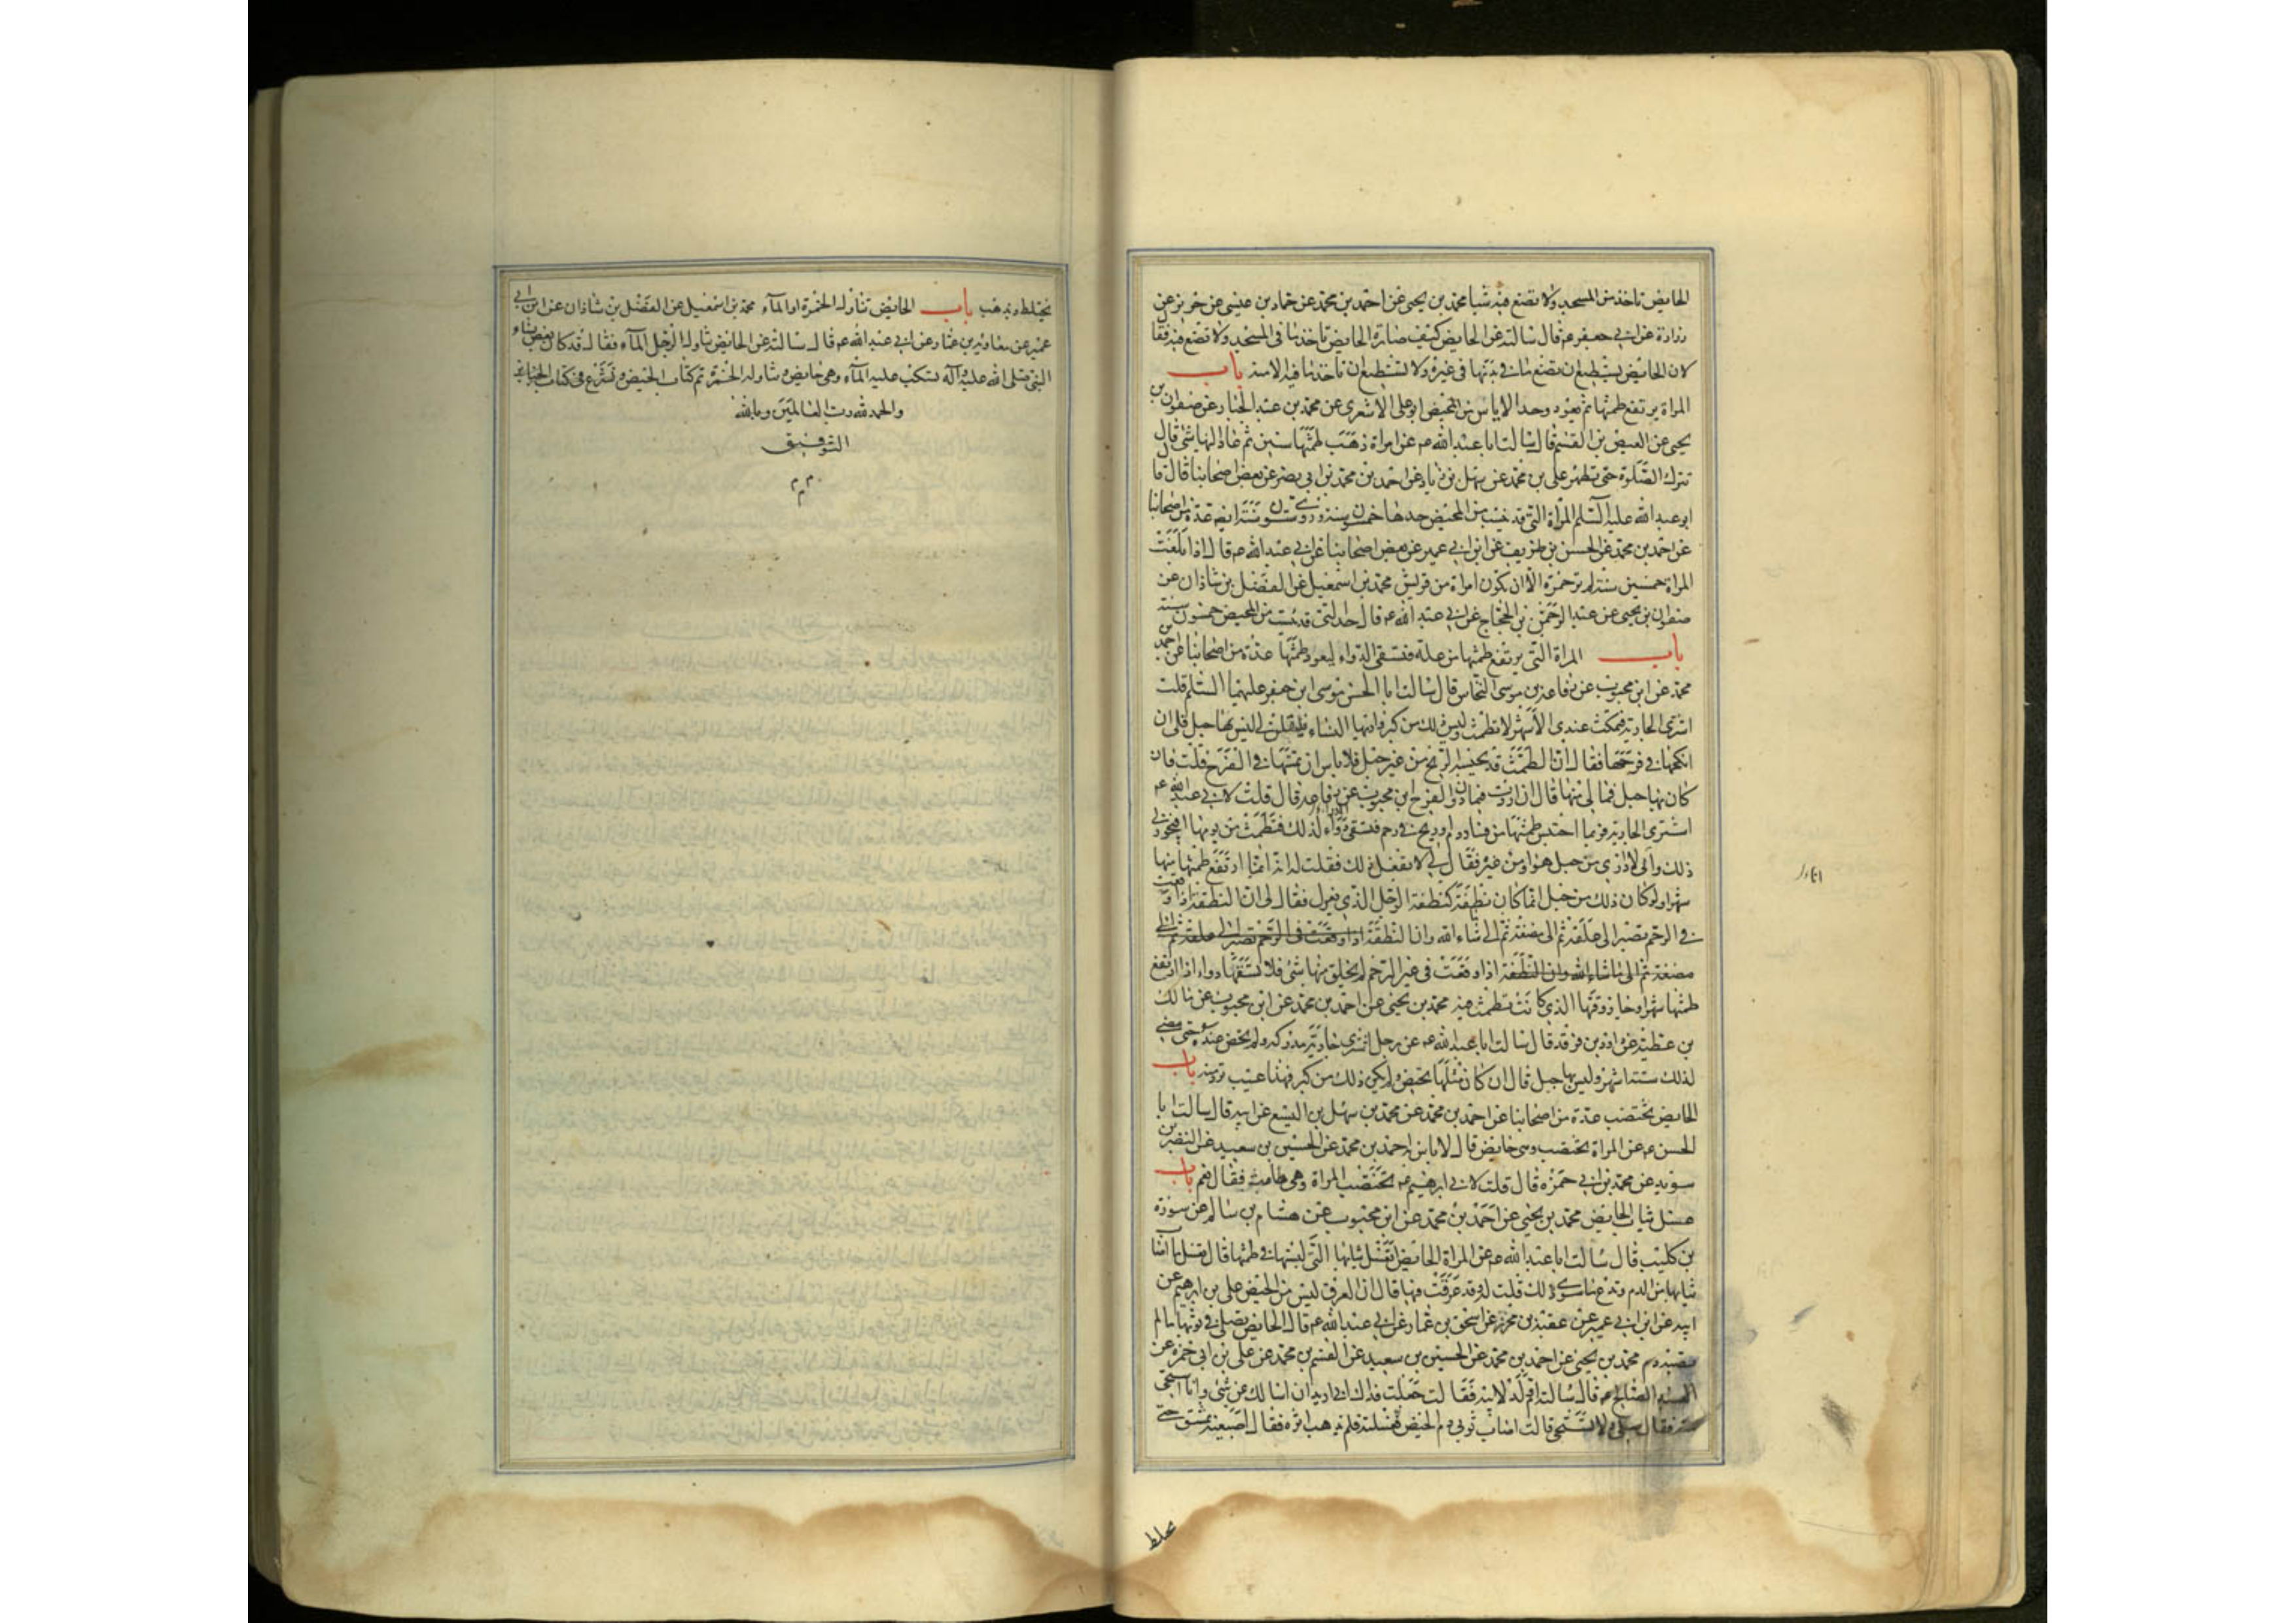 الحايض تاخذ من المسجد ولا تضع فيه شيا محمد بن يحيى عن احمد بن محمد عن حماد بن عيسى عن حريز عن
زرارة عن ابي جعفر عم قال سالته عن الحايض كيف صارت الحايض تاخذ ما فى المسجد ولا تضع فيه فقا
لان الحايض يستطيع ان تضع ما فى يدها فى غيره ولا تستطيع ان تاخذ ما فيه الا منه باب
المراة يرتفع طمثها ثم يعود وحد الاياس من المحيض ابو على الاشعرى عن محمد بن عبد الجبار عن صفوان بن
يحيى عن العيص بن القسم قال سالت ابا عبد الله عم عن امراة ذهب طمثها سنين ثم عاد اليها شى قال
تترك الصلوة حتى تطهر على بن محمد عن سهل بن زياد عن احمد بن محمد بن ابي نصر عن بعض اصحابنا قال قا
ابو عبد الله عليه السلم المراة التى قد يئست من المحيض حدها خمسون سنة وروى ستون سنة ايضه عدة من اصحابنا
عن احمد بن محمد عن الحسن بن ظريف عن ابن ابي عمير عن بعض اصحابنا عن ابي عبد الله عم قال اذا بلغت
المراة خمسين سنة لم تر حمرة الا ان تكون امراة من قريش محمد بن اسمعيل عن الفضل بن شاذان عن
صفوان بن يحيى عن عبد الرحمن بن الحجاج عن ابي عبد الله عم قال حد التى قد يئست من المحيض خمسون سنة
باب المراة التى يرتفع طمثها من علة فتسقى الدواء ليعود طمثها عدة من اصحابنا عن احمد بن
محمد عن ابن محبوب عن رفاعة بن موسى النخاس قال سالت ابا الحسن موسى ابن جعفر عليهما السلم قلت
اشترى الجارية فتمكث عندى الاشهر لا تطمث وليس ذلك من كبر فاريها النساء فيقلن لى ليس بها حبل فلى ان
انكحها فى فرجها فقال ان الطمث قد يحبسه الريح من غير حبل فلا باس ان تمسها فى الفرج قلت فان
كان بها حبل فما لى منها قال ان اردت فيما دون الفرج ابن محبوب عن رفاعة قال قلت لابي عبد الله عم
اشترى الجارية فربما احتبس طمثها من فساد دم او ريح فى رحم فتسقى دواء لذلك فتطمث من يومها افيجوز لى
ذلك وانى لا ادرى من حبل هو او من غيره فقال لى لا تفعل ذلك فقلت له انه انما ارتفع طمثها منها
شهرا ولو كان ذلك من حبل انما كان نطفة كنطفة الرجل الذى يعزل فقال لى ان النطفة اذا وقعت
فى الرحم تصير الى علقة ثم الى مضغة ثم الى ما شاء الله وان النطفة اذا وقعت فى الرحم تصير الى علقة ثم الى
مضغة ثم الى ما شاء الله وان النطفة اذا وقعت فى غير الرحم لم يخلق منها شى فلا تسقها دواء اذا ارتفع
طمثها شهرا وجاز وقتها الذى كانت تطمث فيه محمد بن يحيى عن احمد بن محمد عن ابن محبوب عن مالك
بن عطية عن داود بن فرقد قال سالت ابا عبد الله عم عن رجل اشترى جارية مدركة ولم تحض عنده حتى مضى
لذلك ستة اشهر وليس بها حبل قال ان كان مثلها تحيض ولم يكن ذلك من كبر فهذا عيب ترد منه باب
الحايض تختضب عدة من اصحابنا عن احمد بن محمد عن محمد بن سهل بن اليسع عن ابيه قال سالت ابا
الحسن عم عن المراة تختضب وهى حايض قال لا باس احمد بن محمد عن الحسين بن سعيد عن النضر بن
سويد عن محمد بن ابي حمزة قال قلت لابي ابرهيم عم تختضب المراة وهى طامث فقال نعم باب
غسل ثياب الحايض محمد بن يحيى عن احمد بن محمد عن ابن محبوب عن هشام بن سالم عن سورة
بن كليب قال سالت ابا عبد الله عم عن المراة الحايض اتغسل ثيابها التى لبستها فى طمثها قال تغسل ما اصا
ثيابها من الدم وتدع ما سوى ذلك قلت له وقد عرقت فيها قال ان العرق ليس من الحيض على بن ابرهيم عن
ابيه عن ابن ابي عمير عن عقبة بن محرز عن اسحق بن عمار عن ابي عبد الله عم قال الحايض تصلى فى ثوبها ما لم
يصبه دم محمد بن يحيى عن احمد بن محمد عن الحسين بن سعيد عن القسم بن محمد عن على بن ابي حمزة عن
العبد الصالح عم قال سالته ام ولد لابيه فقالت جعلت فداك انى اريد ان اسالك عن شى وانا استحى
منه فقال سلى ولا تستحى قالت اصاب ثوبي دم الحيض فغسلته فلم يذهب اثره فقال اصبغيه بمشق حتى
يختلط
يختلط ويذهب باب الحايض تناول الخمرة او المآء محمد بن اسمعيل عن الفضل بن شاذان عن ابن ابي
عمير عن معاوية بن عمار عن ابي عبد الله عم قال سالته عن الحايض تناول الرجل المآء فقال قد كان بعض نساء
النبى صلى الله عليه وآله تسكب عليه المآء وهى حايض وتناوله الخمرة تم كتاب الحيض ونشرع فى كتاب الجنايز
والحمد لله رب العالمين وبالله
التوفيق